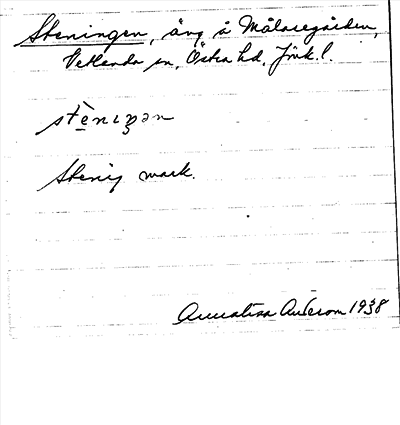 Steningen, äng å Målaregården,
Vetlanda sn, Östra hd, Jönk. l.
stènıŋən
Stenig mark.
Annalisa Anderson 1938